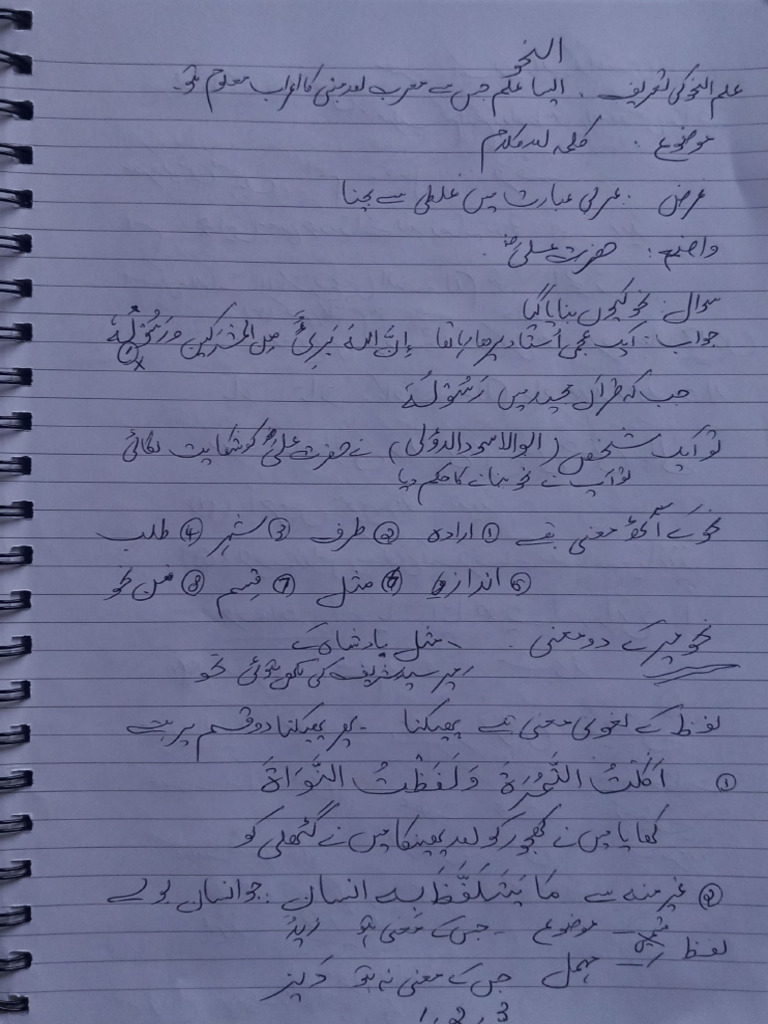 النحو
علم النحو کی تعریف . ایسا علم جس سے معرب اور مبنی کا اعراب معلوم ہو۔
موضوع : کلمہ اور کلام
غرض : عربی عبارت میں غلطی سے بچنا
واضع : حضرت علیؓ
سوال : نحو کیوں بنایا گیا
جواب : ایک عجمی استاد پڑھا رہا تھا إِنَّ اللهَ بَرِيءٌ مِنَ المشرکین وَرَسُوْلِهٖ
جب کہ قرآن مجید میں رَسُوْلُهٗ
تو ایک شخص (ابو الاسود الدؤلی) نے حضرت علیؓ کو شکایت لگائی
تو آپ نے نحو بنانے کا حکم دیا
نحو کے آٹھ معنی ہے ① ارادہ ② طرف ③ شہر ④ طلب
⑤ اندازہ ⑥ مثل ⑦ قسم ⑧ فن نحو
نحو میر کے دو معنی . ۔ مثل بادشاہ کے
میر سید شریف کی لکھی ہوئی نحو
لفظ کے لغوی معنی ہے پھینکنا ۔ پھر پھینکنا دو قسم پر ہے
① اَکَلْتُ التَّمْرَةَ وَلَفَظْتُ النَّوَاةَ
کھایا میں نے کھجور کو اور پھینکا میں نے گٹھلی کو
② غیر منہ سے مَا يَتَلَفَّظُ بِهِ انسان : جو انسان بولے
موضوع ۔ جس کے معنی ہو زیدٌ
لفظ
مہمل جس کے معنی نہ ہو دَیز
1, 2, 3